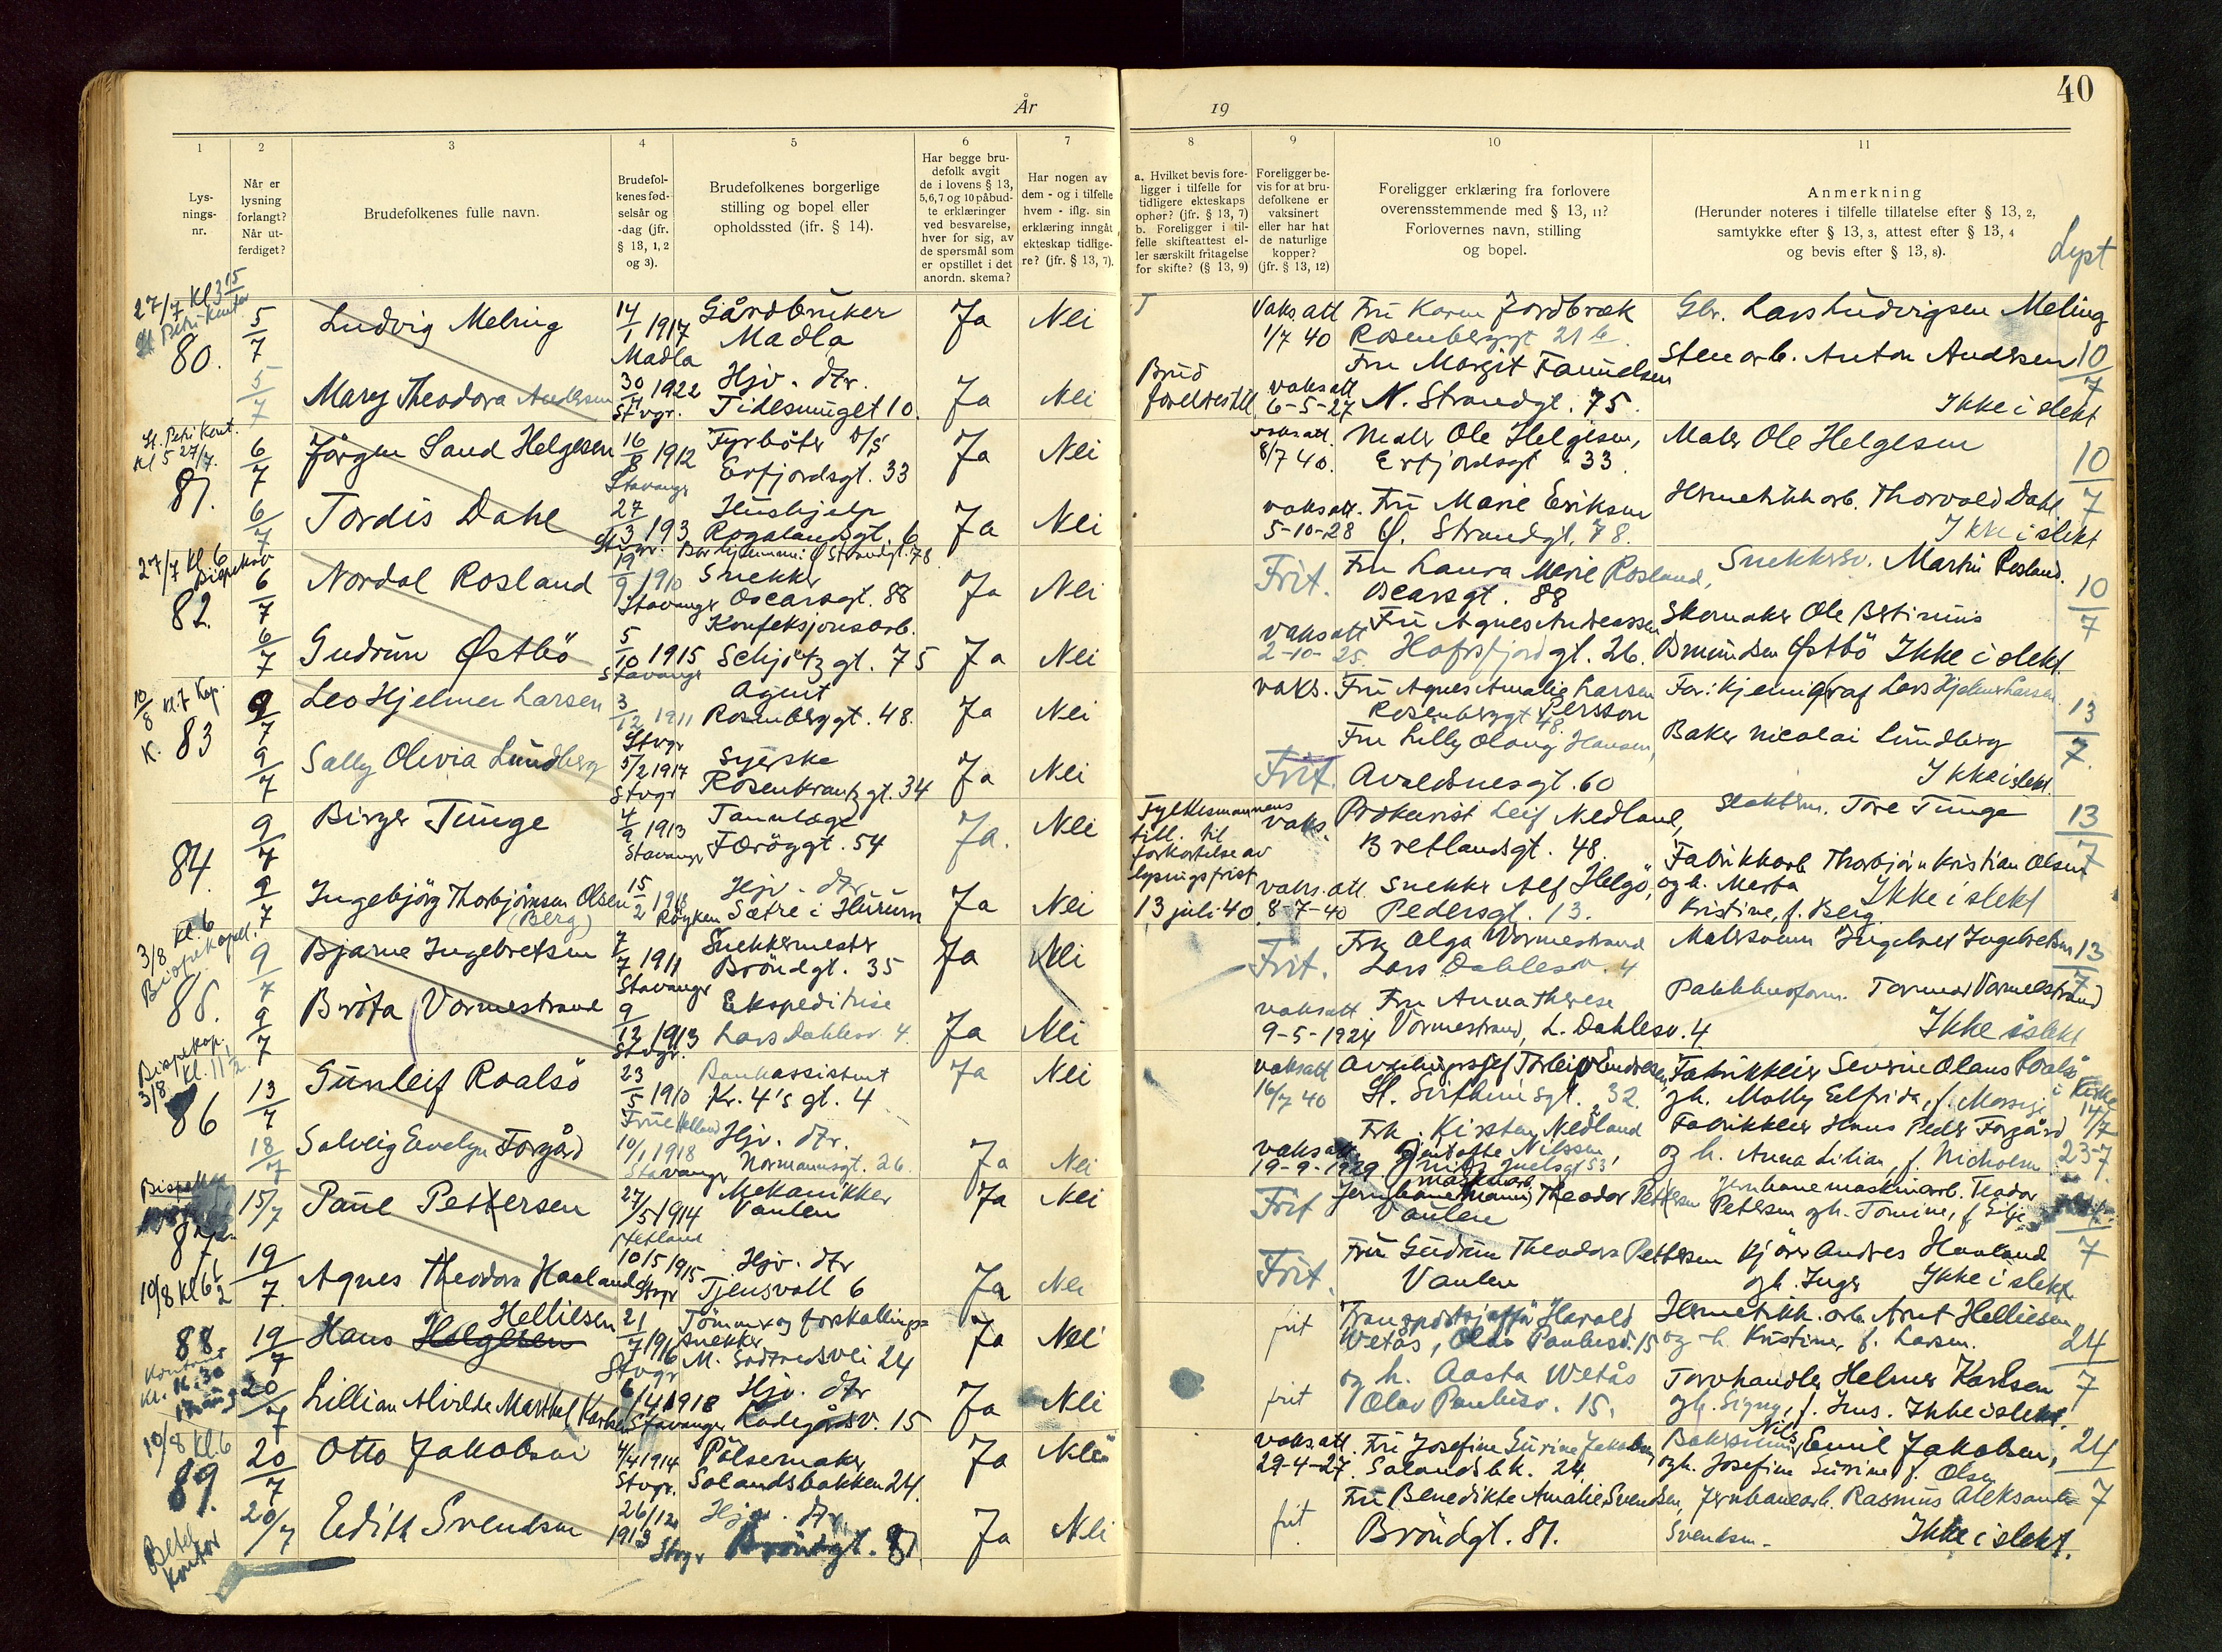 40
År
19
1
2
3
4
5
6
7
8
9
10
11
Lys-
nings-
nr.
Når er
lysning
forlangt?
Når ut-
ferdiget?
Brudefolkenes fulle navn.
Brudefol-
kenes fød-
selsår og
-dag (jfr.
§ 13, 1, 2
og 3).
Brudefolkenes borgerlige
stilling og bopel eller
opholdssted (ifr. § 14).
Har begge bru-
defolk avgit
de i lovens § 13,
5,6,7 og 10 påbud-
te erklæringer
ved besvarelse,
hver for sig, av
de spørsmål som
er opstillet i det
anordn. skema?
Har nogen av
dem - og i tilfelle
hvem - iflg. sin
erklæring inngåt
ekteskap tidlige-
re? (jfr. § 13, 7).
a. Hvilket bevis fore-
ligger i tilfelle for
tidligere ekteskaps
ophør? (jfr. § 13, 7)
b. Foreligger i til-
felle skifteattest el-
ler særskilt fritagelse
for skifte? (§ 13, 9)
Foreligger be-
vis for at bru-
defolkene er
vaksinert
eller har hat
de naturlige
kopper?
(jfr. § 13, 12)
Foreligger erklæring fra forlovere
overensstemmende med § 13, 11?
Forlovernes navn, stilling
og bopel.
Anmerkning
(Herunder noteres i tilfelle tillatelse efter § 13, 2,
samtykke efter § 13, 3, attest efter § 13, 4
og bevis efter § 13, 8).
Lyst
27/7 Kl 3 15
St Petri Kontor
80.
5/7
Ludvig Meling
14/1 1917
Madla
Gårdbruker
Madla
Ja
Nei
Vaks. att
1/7 40
Fru Karen Jordbræk
Rosenberggt 21 b
Gbr. Lars Ludvigsen Meling
5/7
Mary Theodora Andersen
30/7 1922
Stvgr.
Hjv. dtr.
Tidesmuget 10.
Ja
Nei
Brud
foreldretill.
vaks att
6-5-27
Fru Margit Samuelsen
N. Strandgt. 75.
Stenarb. Anton Andersen
Ikke i slekt
10/7
St. Petri Kont.
Kl 5 27/7.
81.
6/7
Jörgen Sand Helgesen
16/8 1912
Stavanger
Fyrböter D/S
Erfjordsgt. 33
Ja
Nei
vaks att.
8/7 40.
Maler Ole Helgesen,
Erfjordsgt. 33.
Maler Ole Helgesen
10/7
6/7
Tordis Dahl
27/3 193
Stvgr.
Hushjelp
Rogalandsgt. 6
Bor hjemme: Ø Strandgt. 78
Ja
Nei
vaks att.
5-10-28
Fru Marie Eriksen
Ø. Strandgt. 78.
Hermetikkarb. Thorvald Dahl
Ikke i slekt
27/7 Kl. 6
Bispekap
82.
6/7
Nordal Rosland
19/9 1910
Stavanger
Snekker
Oscarsgt. 88
Ja
Nei
Frit.
Fru Laura Marie Rosland,
Oscarsgt. 88
Snekkersv. Martin Rosland.
10/7
6/7
Gudrun Østbö
5/10 1915
Stavanger
Konfeksjonsarb.
Schjötz gt. 75
Ja
Nei
vaks att
2-10-25.
Fru Agnes Andreassen
Hafrsfjordgt. 26.
Skomaker Ole Bertinius
Omundsen Østbö Ikke i slekt.
10/8 Kl. 7 Kap.
K.
83
9/7
Leo Hjelmer Larsen
3/12 1911
Stvgr
Agent
Rosenberggt. 48.
Ja
Nei
vaks.
Fru Agnes Amalie Larsen
Persson
Rosenberggt 48.
Far: Kjemigraf Lars Hjelmer Larsen
13/7
9/7
Sally Olivia Lundberg
5/2 1917
Stvgr
Syerske
Rosenkrantzgt. 34
Ja
Nei
Frit.
Fru Lilly Olaug Hansen,
Avaldsnesgt. 60
Baker Nicolai Lundberg
Ikke i slekt.
84.
9/7
Birger Tunge
4/9 1913
Stavanger
Tannlæge
Færöygt. 54
Ja.
Nei
Fylkesmannens
till. til
forkortelse av
lysingsfrist
13 juli 40
vaks.
Prokurist Leif Nedland,
Bretlandsgt. 48
Slakterm. Tore Tunge
13/7
9/7
Ingebjörg Thorbjörnsen Olsen
(Berg)
15/2 1918
Röyken
Hjv. dtr
Sætre i Hurum
Ja
Nei
vaks. att.
8-7-40
Snekker Alf Helgö,
Pedersgt. 13.
Fabrikkarb Thorbjörn Kristian Olsen
og h. Marta
Kristine, f. Berg.
Ikke i slekt
3/8 Kl. 6
Bispekapell.
85.
9/7
Bjarne Ingebretsen
7/7 1911
Stavanger
Snekkermester
Bröndgt. 35
Ja
Nei
Frit.
Frk Olga Vormestrand
Lars Dahlesv. 4
Malersvenn Ingebret Ingebretsen
13/7
9/7
Brita Vormestrand
9/12 1913
Stvgr.
Ekspeditrise
Lars Dahlesv. 4.
Ja
Nei
vaks att
9-5-1924
Fru Anna Therese
Vormestrand, L. Dahlesv. 4
Pakkhusform. Tormod Vormestrand
Ikke i slekt
Bispekap.
3/8 Kl. 11 1/2.
86
13/7
Gunleif Roalsö
23/5 1910
Bankassistent
Kr. 4's gt. 4
Ja
Nei
vaks att
16/7 40
Avdelingssjef Torleiv Endresen,
St. Svithunsgt. 32.
Fabrikkeier Severin Olaus Roalsö
gh. Molly Elfrida, f.
14/7
18/7
Solveig Evelyn Forgård
10/1 1918
Stavanger
Hjv. dtr.
Normannsgt. 26.
Ja
Nei
vaks att.
19-9-1929
Frk. Kirsten Nedland
Nilssen,
Fabrikkeier Hans Peder Forgård
og h. Anna Lilian, f. Nicholson
23-7.
87
15/7
Paul Pettersen
27/5 1914
Hetland
Mekanikker
Vaulen
Ja
Nei
Frit
Jernbanemann Theodor Pettersen
Vaulen
Jernbanemaskinarb. Teodor
Petersen gh. Tomine, f. Eltje
7
10/8 Kl 6 1/2
19/7.
Agnes Theodora Haaland
10/5 1915
Stvgr
Hjv. dtr
Tjensvoll 6
Ja
Nei
Frit.
Fru Gudrun Theodora Pettersen
Vaulen
Kjörer Andres Haaland
gh. Inger Ikke i slekt.
88
Kontoret
Kl. 11.30
17. aug
19/7
Hans Helgesen
Helliesen
21/7 1916
Stvgr
Tömmer og forskallings-
snekker
M. Sødfredsvei 24
Ja
Nei
frit
Transportsjåffør Harald
Wetås, Olav Paulusv. 15
Hermetikk. arb. Arnt Helliesen
og h. Kristine, f. Larsen.
24/7
20/7
Lillian Alvilde Marthel Karlsen
6/4 1918
Stavanger
Hjv. dtr
Ladegårdsv. 15
Ja
Nei
frit
og h. Aasta Wetås
Olav Paulusv. 15.
Torvhandler Helmer Karlsen
gh. Signy, f. Jens. Ikke i slekt.
10/8 Kl. 6
89.
20/7
Otto Jakobsen
4/4 1914
Stvgr.
Pölsemaker
Solandsbakken 24.
Ja
Nei
vaks. att.
29-4-27.
Fru Josefine Surine Jakobsen
Solandsbk. 24
Nils
Emil Jakobsen,
ogh. Josefine Surine f. Olsen
24/7
Betel
Kontor
20/7
Edith Svendsen
26/12
1913
Stvgr
Hjv. dtr.
Bröndgt. 81
Ja
Nei
frit
Fru Benedikte Amalie Svendsen,
Bröndgt. 81.
Jernbanearb. Rasmus Aleksander
Svendsen.
Ikke i slekt.